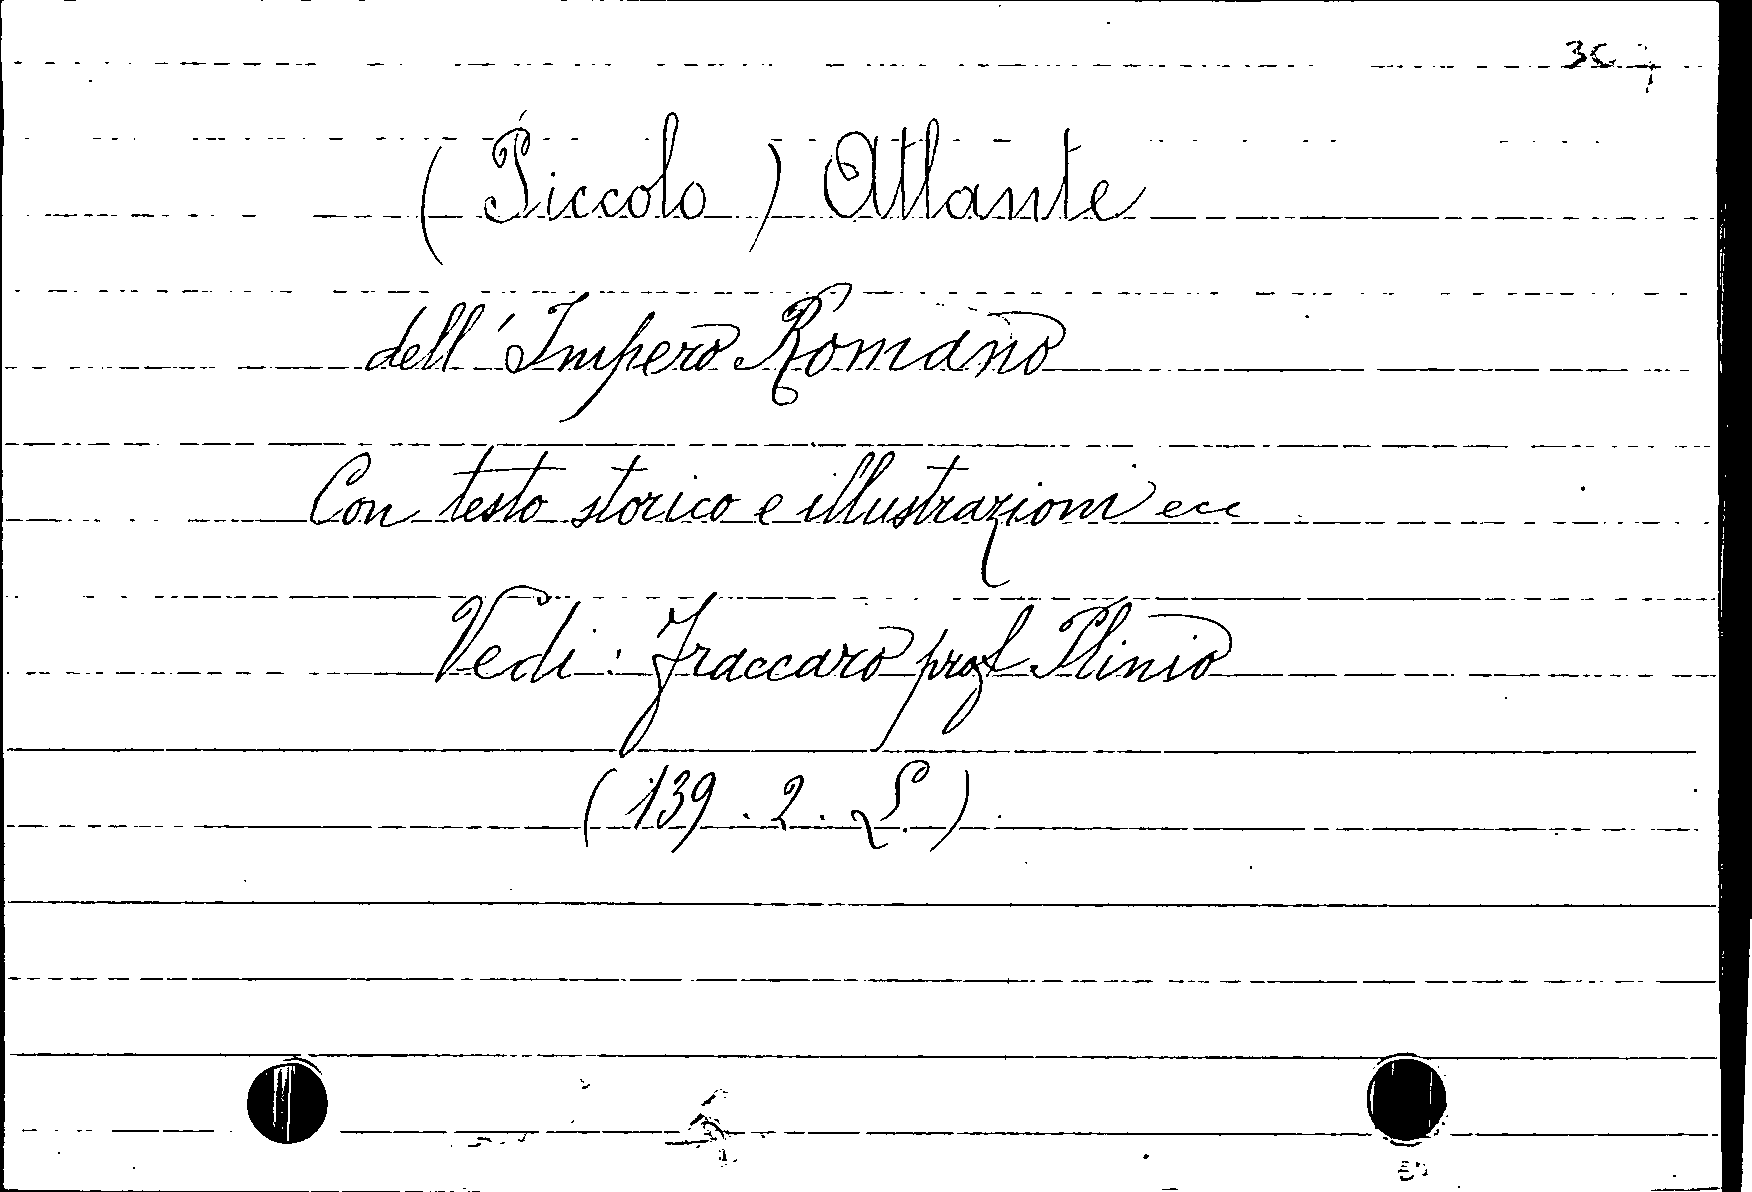 (Piccolo) Atlante
dell'Impero Romano
Con testo storico e illustrazioni ecc
Vedi: Fraccaro prof Plinio
(139.2.L.)